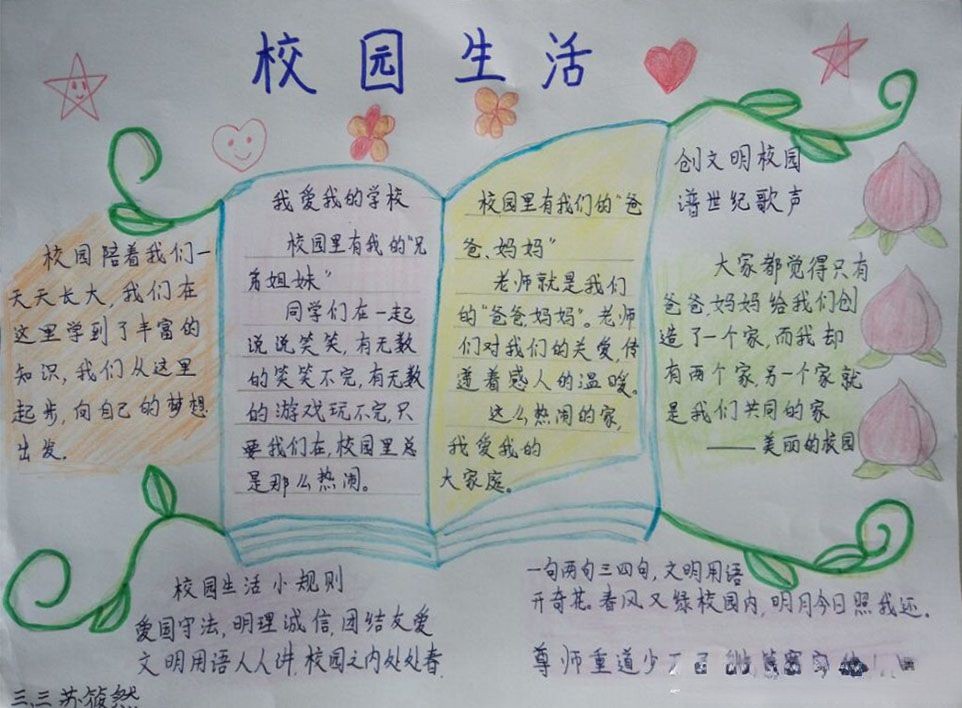 校园生活
校园陪着我们一
天天长大,我们在
这里学到了丰富的
知识,我们从这里
起步,向自己的梦想
出发.
我爱我的学校
校园里有我的“兄
弟姐妹”
同学们在一起
说说笑笑,有无数
的笑笑不完,有无数
的游戏玩不完,只
要我们在,校园里总
是那么热闹。
校园里有我们的“爸
爸、妈妈”
老师就是我们
的“爸爸、妈妈”。老师
们对我们的关爱,传
递着感人的温暖。
这么热闹的家,
我爱我的
大家庭。
创文明校园
谱世纪歌声
大家都觉得只有
爸爸、妈妈给我们创
造了一个家,而我却
有两个家,另一个家就
是我们共同的家
——美丽的校园
校园生活小规则
爱国守法,明理诚信,团结友爱
文明用语人人讲,校园之内处处春.
一句两句三四句,文明用语
开奇花。春风又绿校园内,明月今日照我还.
尊师重道少
三.三苏筱然